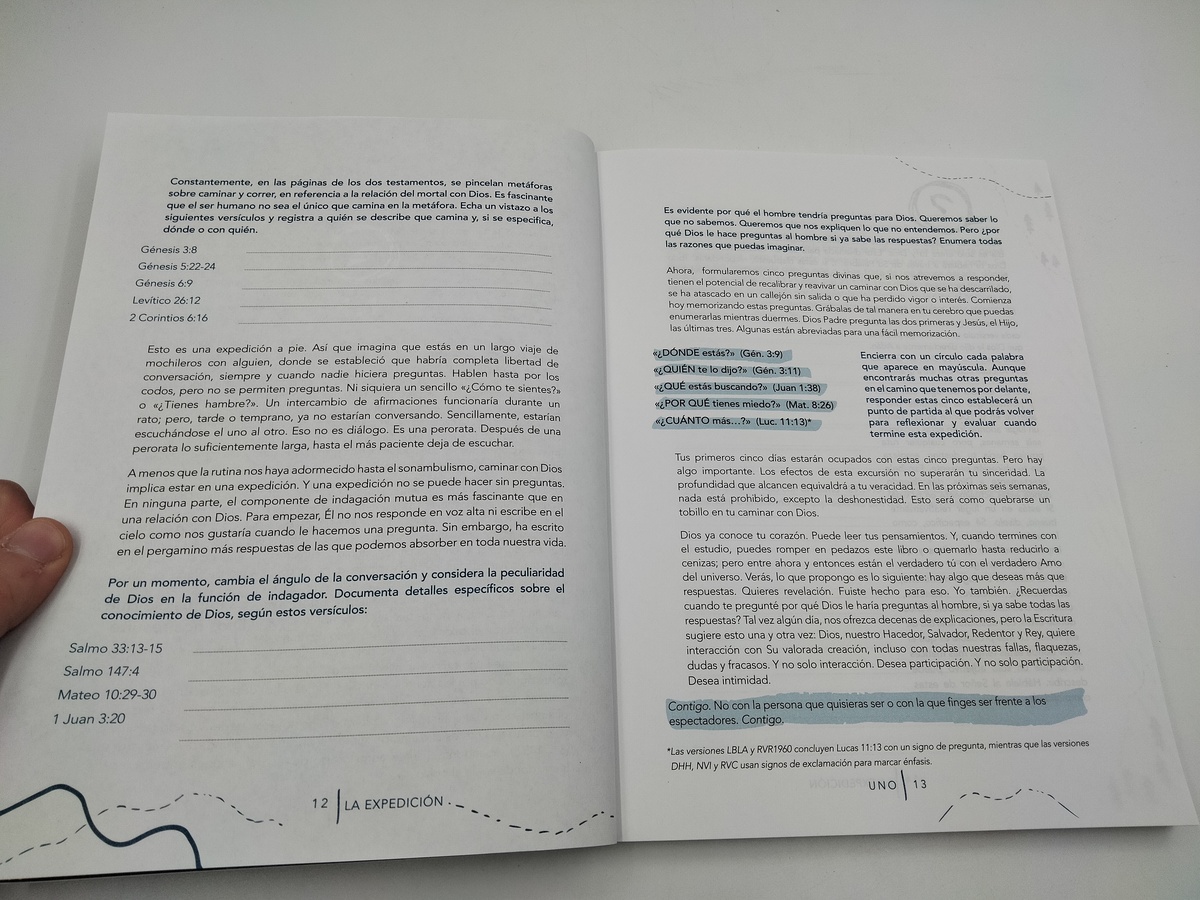 Constantemente, en las páginas de los dos testamentos, se pincelan metáforas
sobre caminar y correr, en referencia a la relación del mortal con Dios. Es fascinante
que el ser humano no sea el único que camina en la metáfora. Echa un vistazo a los
siguientes versículos y registra a quién se describe que camina y, si se especifica,
dónde o con quién.
Génesis 3:8
Génesis 5:22-24
Génesis 6:9
Levítico 26:12
2 Corintios 6:16
Esto es una expedición a pie. Así que imagina que estás en un largo viaje de
mochileros con alguien, donde se estableció que habría completa libertad de
conversación, siempre y cuando nadie hiciera preguntas. Hablen hasta por los
codos, pero no se permiten preguntas. Ni siquiera un sencillo «¿Cómo te sientes?»
o «¿Tienes hambre?». Un intercambio de afirmaciones funcionaría durante un
rato; pero, tarde o temprano, ya no estarían conversando. Sencillamente, estarían
escuchándose el uno al otro. Eso no es diálogo. Es una perorata. Después de una
perorata lo suficientemente larga, hasta el más paciente deja de escuchar.
A menos que la rutina nos haya adormecido hasta el sonambulismo, caminar con Dios
implica estar en una expedición. Y una expedición no se puede hacer sin preguntas.
En ninguna parte, el componente de indagación mutua es más fascinante que en
una relación con Dios. Para empezar, Él no nos responde en voz alta ni escribe en el
cielo como nos gustaría cuando le hacemos una pregunta. Sin embargo, ha escrito
en el pergamino más respuestas de las que podemos absorber en toda nuestra vida.
Por un momento, cambia el ángulo de la conversación y considera la peculiaridad
de Dios en la función de indagador. Documenta detalles específicos sobre el
conocimiento de Dios, según estos versículos:
Salmo 33:13-15
Salmo 147:4
Mateo 10:29-30
1 Juan 3:20
12 | LA EXPEDICIÓN
Es evidente por qué el hombre tendría preguntas para Dios. Queremos saber lo
que no sabemos. Queremos que nos expliquen lo que no entendemos. Pero ¿por
qué Dios le hace preguntas al hombre si ya sabe las respuestas? Enumera todas
las razones que puedas imaginar.
Ahora, formularemos cinco preguntas divinas que, si nos atrevemos a responder,
tienen el potencial de recalibrar y reavivar un caminar con Dios que se ha descarrilado,
se ha atascado en un callejón sin salida o que ha perdido vigor o interés. Comienza
hoy memorizando estas preguntas. Grábalas de tal manera en tu cerebro que puedas
enumerarlas mientras duermes. Dios Padre pregunta las dos primeras y Jesús, el Hijo,
las últimas tres. Algunas están abreviadas para una fácil memorización.
«¿DÓNDE estás?» (Gén. 3:9)
«¿QUIÉN te lo dijo?» (Gén. 3:11)
«¿QUÉ estás buscando?» (Juan 1:38)
«¿POR QUÉ tienes miedo?» (Mat. 8:26)
«¿CUÁNTO más...?» (Luc. 11:13)*
Encierra con un círculo cada palabra
que aparece en mayúscula. Aunque
encontrarás muchas otras preguntas
en el camino que tenemos por delante,
responder estas cinco establecerá un
punto de partida al que podrás volver
para reflexionar y evaluar cuando
termine esta expedición.
Tus primeros cinco días estarán ocupados con estas cinco preguntas. Pero hay
algo importante. Los efectos de esta excursión no superarán tu sinceridad. La
profundidad que alcancen equivaldrá a tu veracidad. En las próximas seis semanas,
nada está prohibido, excepto la deshonestidad. Esto será como quebrarse un
tobillo en tu caminar con Dios.
Dios ya conoce tu corazón. Puede leer tus pensamientos. Y, cuando termines con
el estudio, puedes romper en pedazos este libro o quemarlo hasta reducirlo a
cenizas; pero entre ahora y entonces están el verdadero tú con el verdadero Amo
del universo. Verás, lo que propongo es lo siguiente: hay algo que deseas más que
respuestas. Quieres revelación. Fuiste hecho para eso. Yo también. ¿Recuerdas
cuando te pregunté por qué Dios le haría preguntas al hombre, si ya sabe todas las
respuestas? Tal vez algún día, nos ofrezca decenas de explicaciones, pero la Escritura
sugiere esto una y otra vez: Dios, nuestro Hacedor, Salvador, Redentor y Rey, quiere
interacción con Su valorada creación, incluso con todas nuestras fallas, flaquezas,
dudas y fracasos. Y no solo interacción. Desea participación. Y no solo participación.
Desea intimidad.
Contigo. No con la persona que quisieras ser o con la que finges ser frente a los
espectadores. Contigo.
*Las versiones LBLA y RVR1960 concluyen Lucas 11:13 con un signo de pregunta, mientras que las versiones
DHH, NVI y RVC usan signos de exclamación para marcar énfasis.
UNO | 13